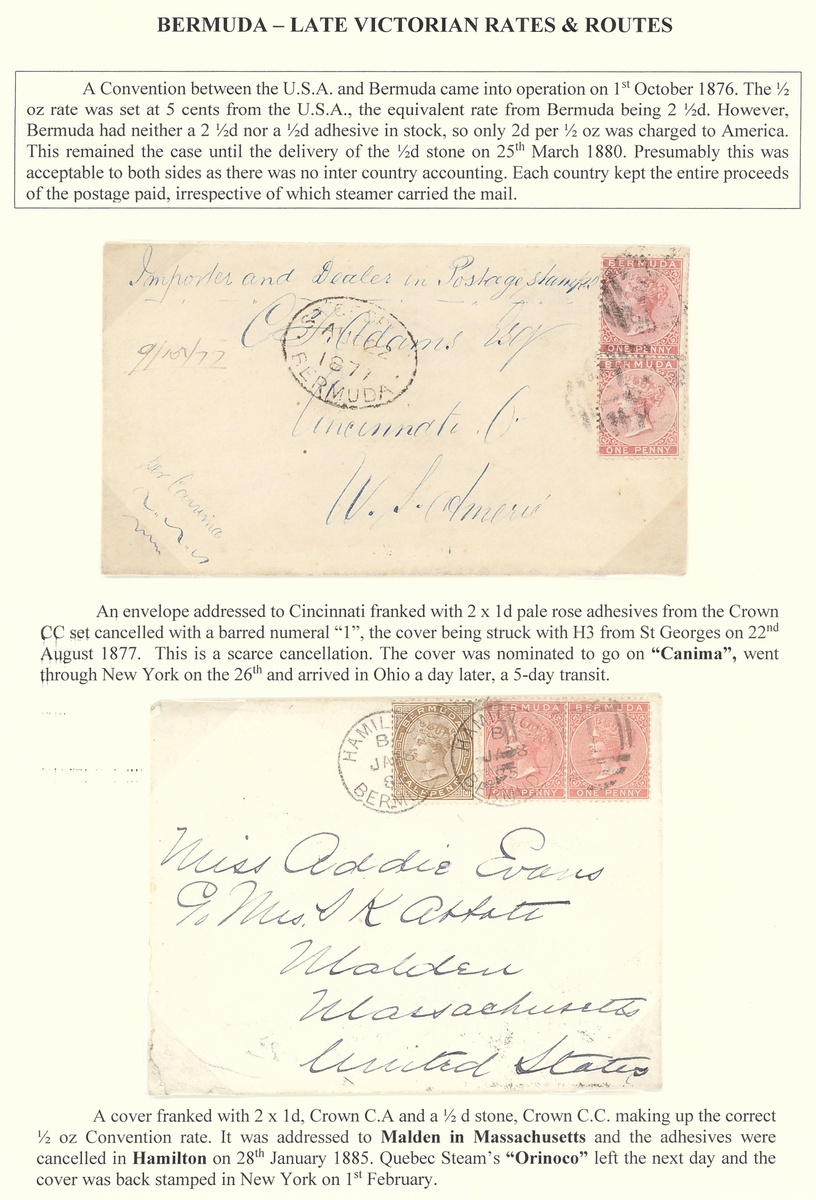 BERMUDA – LATE VICTORIAN RATES & ROUTES
A Convention between the U.S.A. and Bermuda came into operation on 1st October 1876. The ½
oz rate was set at 5 cents from the U.S.A., the equivalent rate from Bermuda being 2 ½d. However,
Bermuda had neither a 2 ½d nor a ½d adhesive in stock, so only 2d per ½ oz was charged to America.
This remained the case until the delivery of the ½d stone on 25th March 1880. Presumably this was
acceptable to both sides as there was no inter country accounting. Each country kept the entire proceeds
of the postage paid, irrespective of which steamer carried the mail.
Importer and Dealer in Postage stamps
BERMUDA
ONE PENNY
BERMUDA
ONE PENNY
C. F. Adams Esq
AU 22
1877
BERMUDA
9/10/77
Cincinnati. O.
per Canima
W. S. Americ
An envelope addressed to Cincinnati franked with 2 x 1d pale rose adhesives from the Crown
CC set cancelled with a barred numeral “1”, the cover being struck with H3 from St Georges on 22nd
August 1877. This is a scarce cancellation. The cover was nominated to go on “Canima”, went
through New York on the 26th and arrived in Ohio a day later, a 5-day transit.
HAMIL
B
JA
8
BERM
BERMUDA
HALFPENNY
HAMILTON
B
JA 28
85
BERMUDA
ONE PENNY
BERMUDA
ONE PENNY
Miss Addie Evans
c/o Mrs. S K Abbott
Malden
Massachusetts
United States
A cover franked with 2 x 1d, Crown C.A and a ½ d stone, Crown C.C. making up the correct
½ oz Convention rate. It was addressed to Malden in Massachusetts and the adhesives were
cancelled in Hamilton on 28th January 1885. Quebec Steam’s “Orinoco” left the next day and the
cover was back stamped in New York on 1st February.